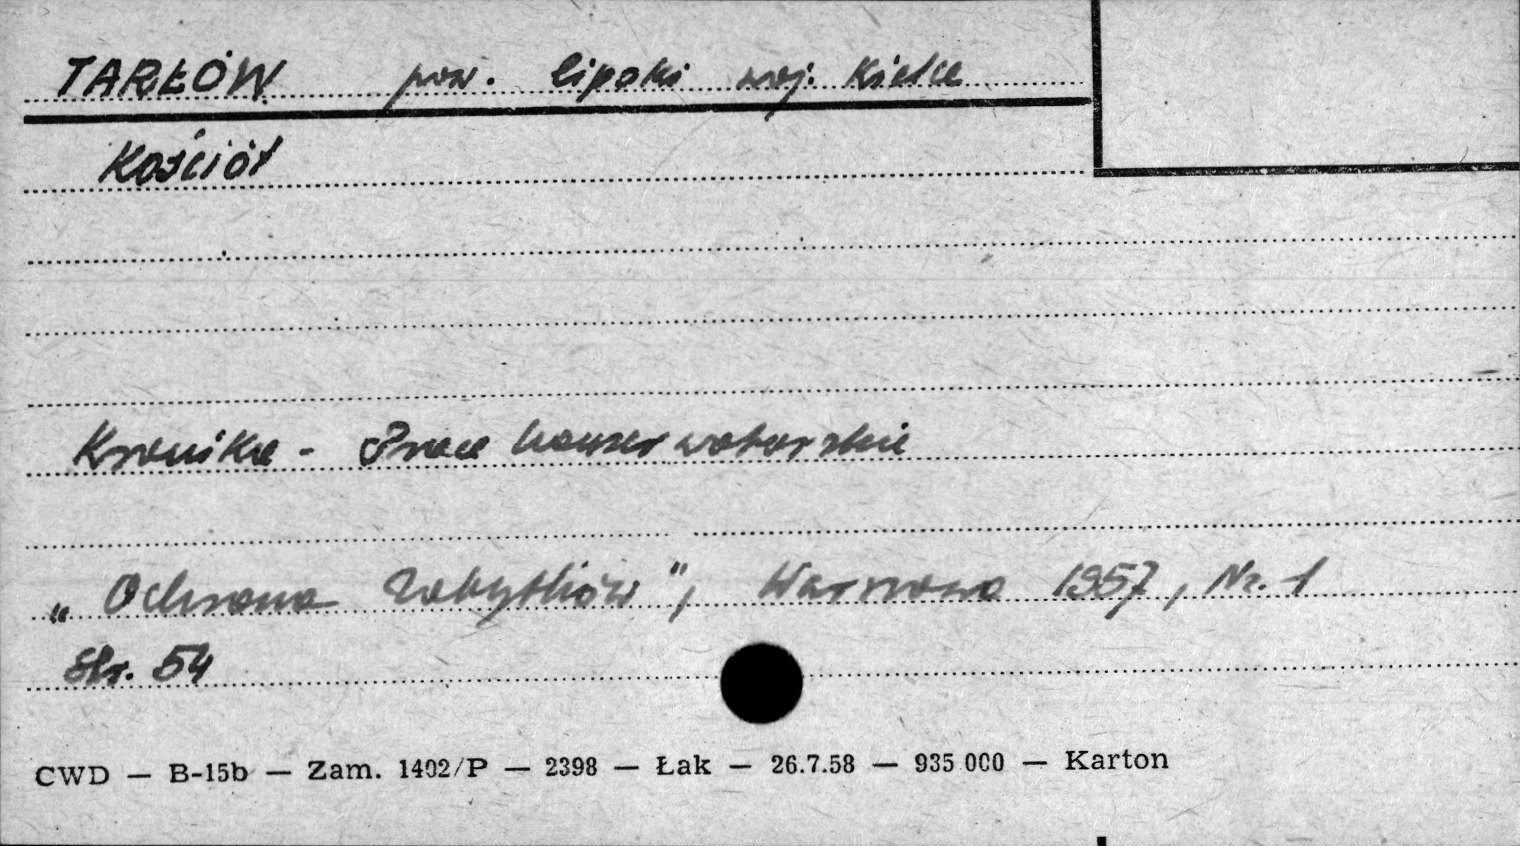 TARŁÓW pow. lipski woj. Kielce
Kościół
Kronika - Prace konserwatorskie
„Ochrona Zabytków”, Warszawa 1957, Nr. 1
Str. 54
CWD — B-15b — Zam. 1402/P — 2398 — Łak — 26.7.58 — 935 000 — Karton